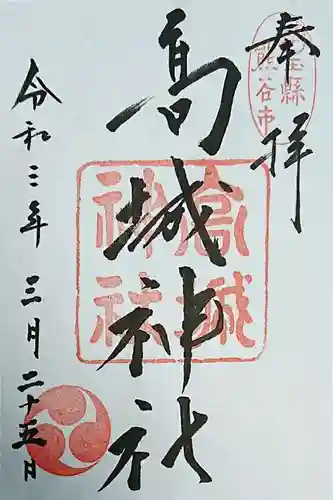 奉拝
埼玉縣
熊谷市
高城神社
高城
神社
令和三年三月二十五日